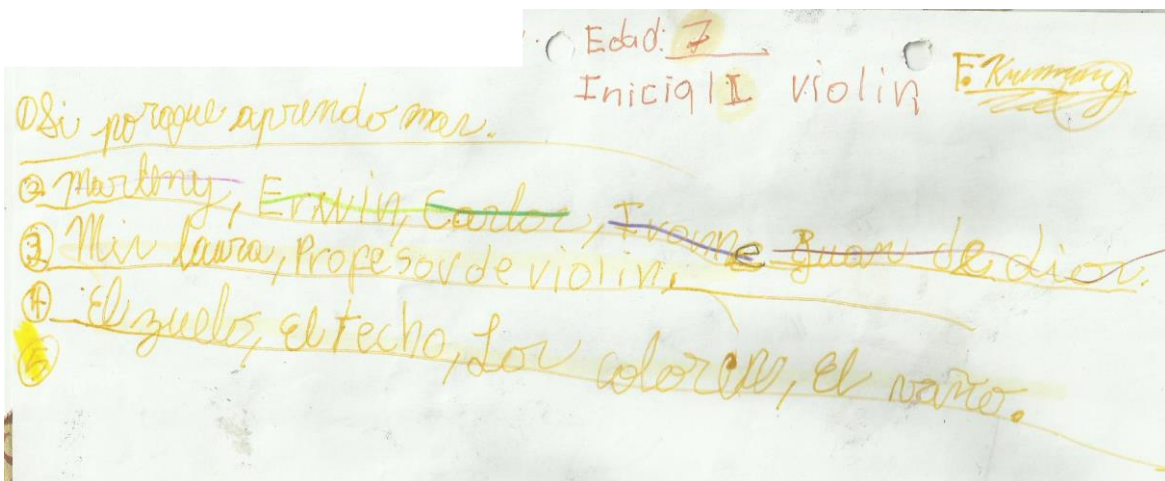 Edad: 7
Inicial I violin
①Si porque aprendo mas.
② Marleny, Erwin, Carlos, Ivonne Juan de Dios.
③ Mis Laura, Profesor de violin,
④ El zuelo, el techo, Los colores, el vaño.
⑤